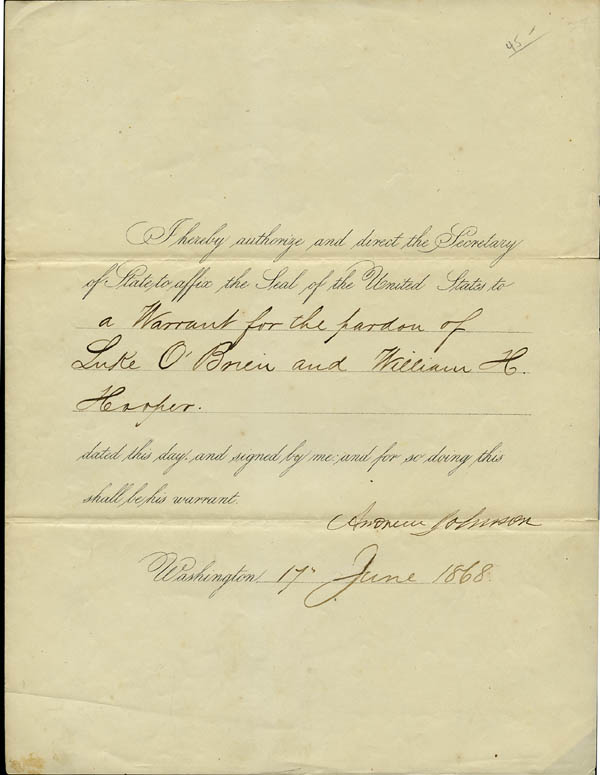 45
I hereby authorize and direct the Secretary
of State to affix the Seal of the United States to
a Warrant for the pardon of
Luke O'Brien and William H.
Hooper.
dated this day, and signed by me: and for so doing this
shall be his warrant.
Andrew Johnson
Washington, 17" June 1868.